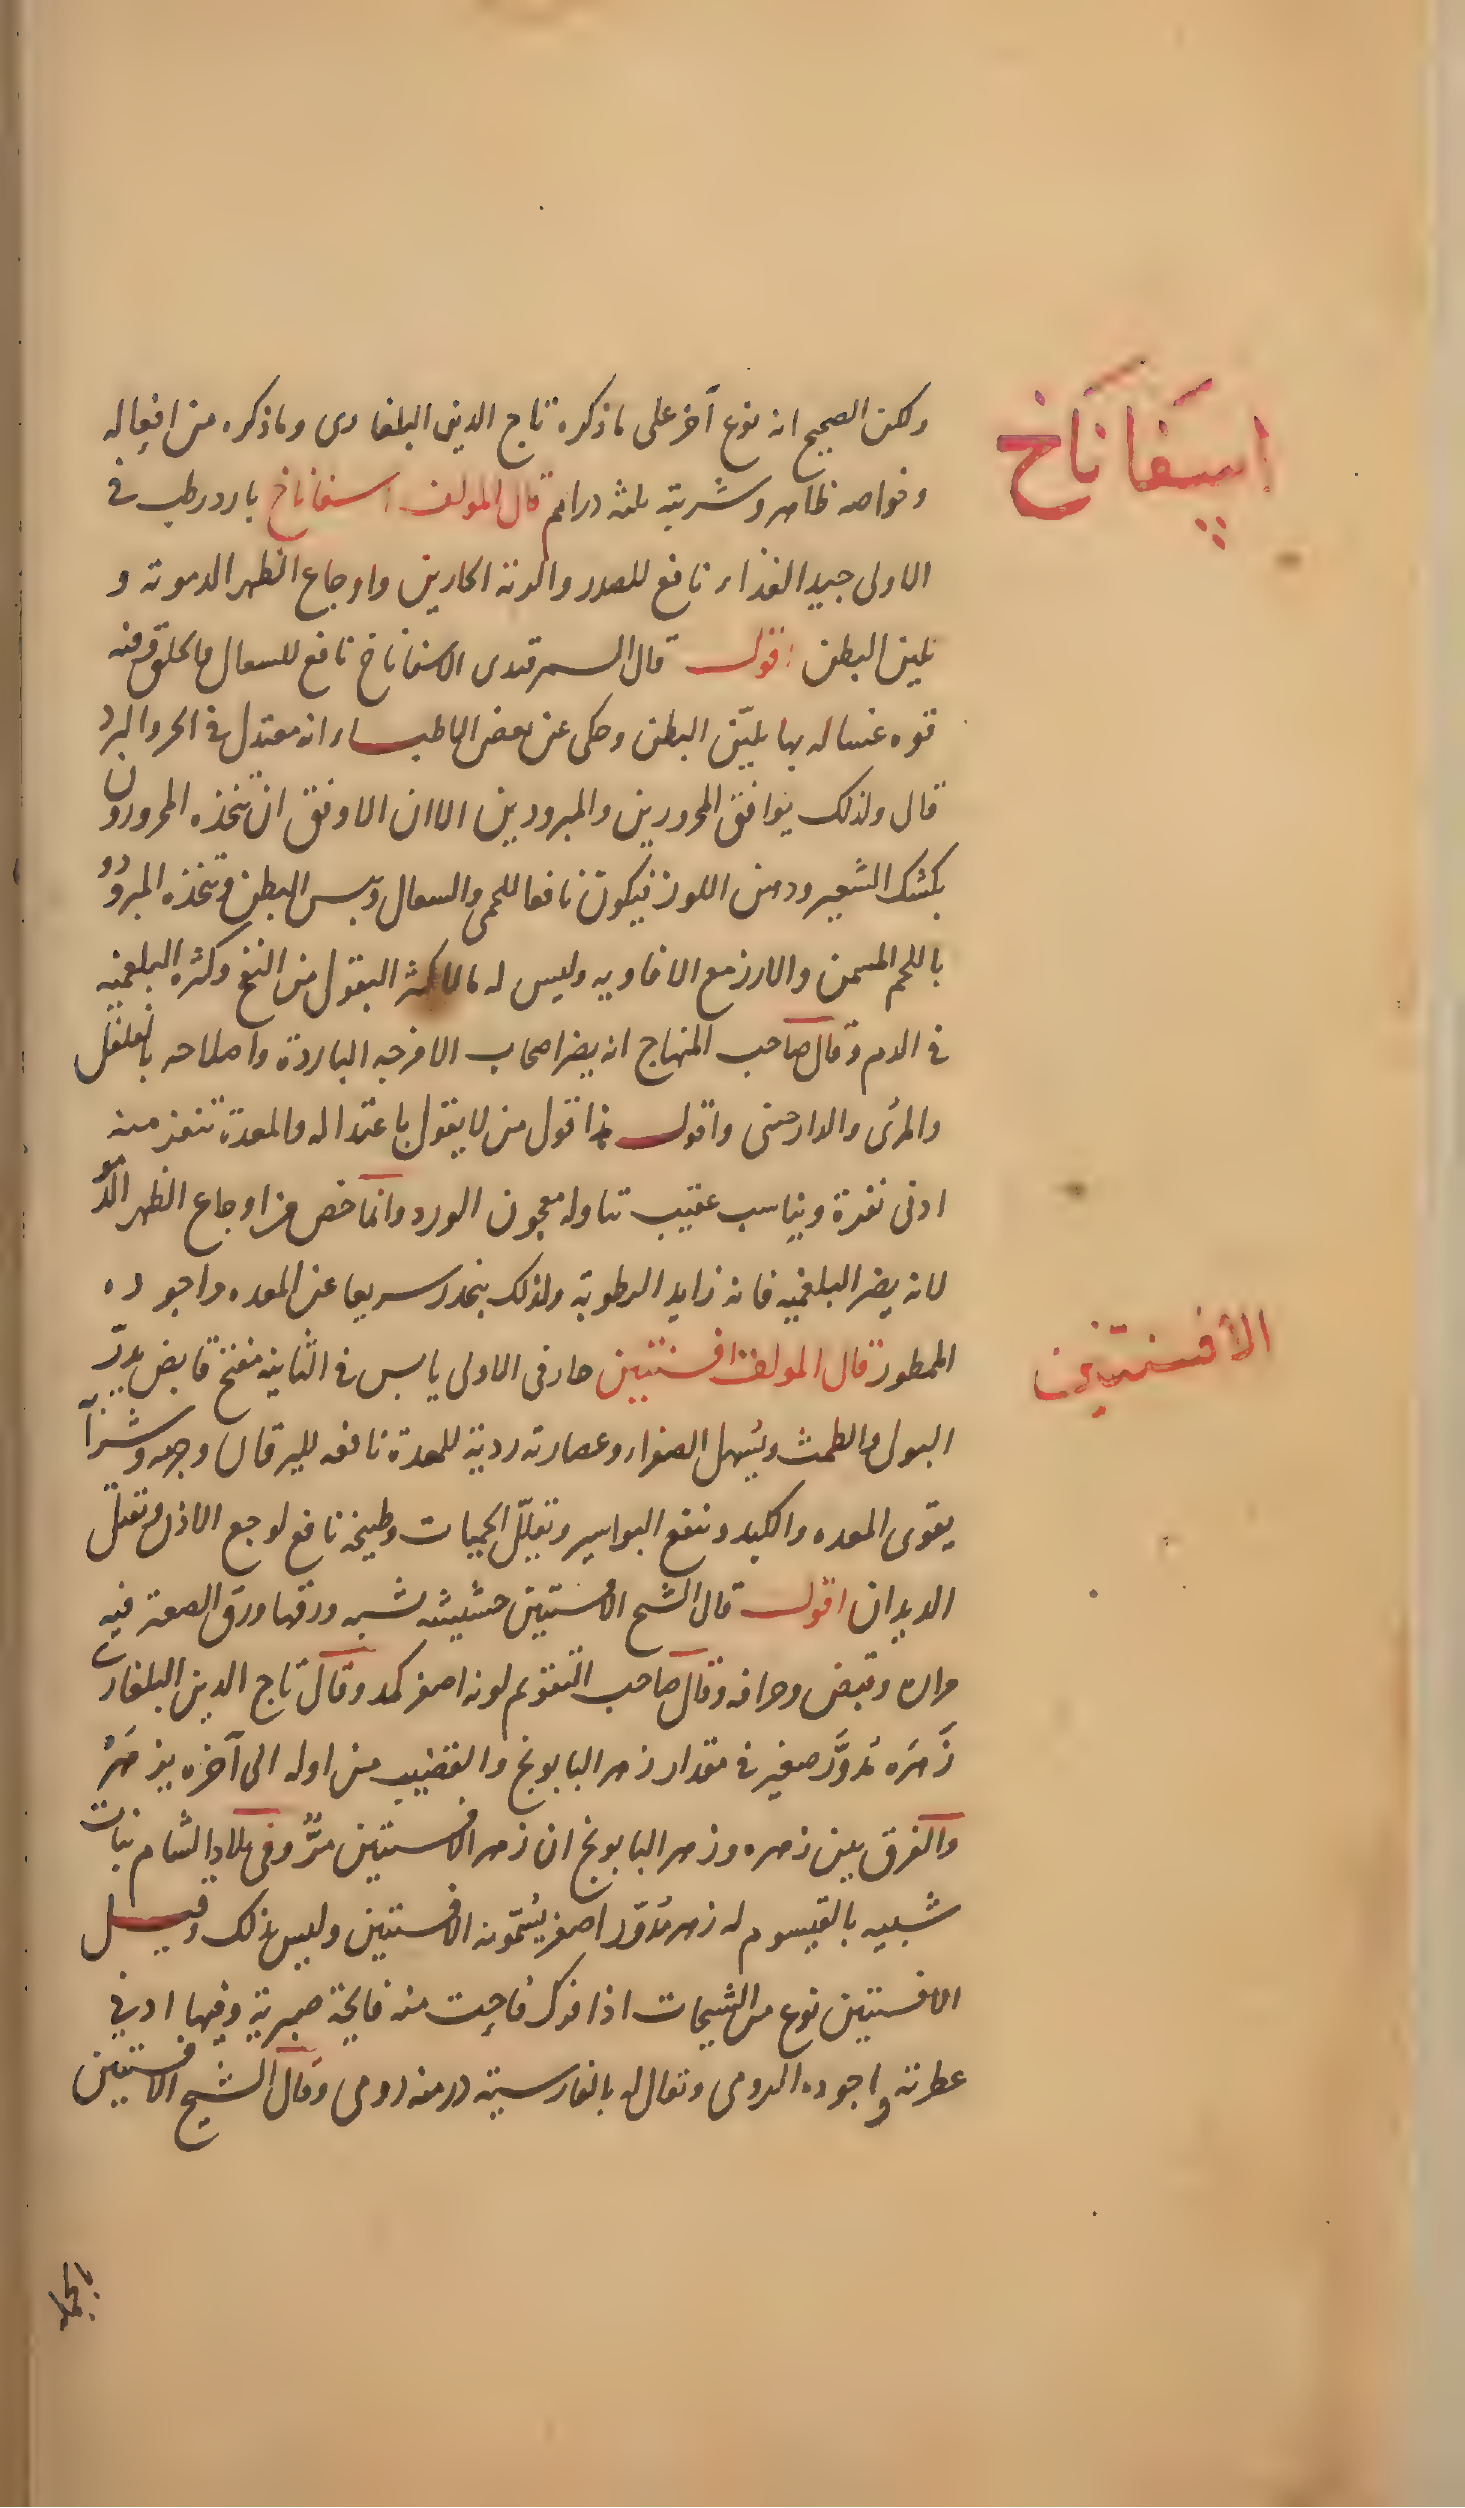 اسفاناخ
ولكن الصحيح انه نوع آخر على ما ذكره تاج الدين البلغارى وما ذكره من افعاله
وخواصه ظاهر وشربته ثلثه دراهم قال المولف اسفاناخ بارد رطب فى
الاولى جيد الغذاء نافع للصدر والرئة الحارين واوجاع الظهر الدموية و
يلين البطن اقول قال السمرقندى الاسفاناخ نافع للسعال والحلق وفيه
قوه غساله بها يليّن البطن وحكى عن بعض الاطباء انه معتدل فى الحر والبرد
قال ولذلك يوافق المحرورين والمبرودين الا ان الاوفق ان يتخذه المحرورون
بكشك الشعير ودهن اللوز فيكون نافعا للحمى والسعال ويبس البطن ويتخذه المبرود
باللحم المسمن والارز مع الافاويه وليس له ما لاكثر البقول من النفخ وكثره البلغميه
فى الدم وقال صاحب المنهاج انه يضر اصحاب الامزجه الباردة واصلاحه بالفلفل
والمرى والدارصينى واقول هذا قول من لا يقول باعتداله والمعدة تنفر منه
ادنى نفرة ويناسب عقيب تناوله معجون الورد وانما خص من اوجاع الظهر الدمو
لانه يضر البلغميه فانه زايد الرطوبة ولذلك ينحدر سريعا عن المعده واجوده
الافسنتين
الممطور قال المولف افسنتين حار فى الاولى يابس فى الثانيه مفتح قابض يدرّ
البول والطمث ويُسهل الصفراء وعصارته ردية للمعدة نافعه لليرقان وجرمه وشرابه
يقوى المعده والكبد وينفع البواسير ويقلّل الحميات وطبيخه نافع لوجع الاذن ويقتل
الديدان اقول قال الشيخ الافسنتين حشيشه يشبه ورقها ورق الصعتر فيه
مراره وقبض وحرافه وقال صاحب التقويم لونه اصفر كمد وقال تاج الدين البلغارى
زَهرَه مُدوَّر صغير فى مقدار زهر البابونج والقضيب من اوله الى آخره يزهرُ
والفرق بين زهره وزهر البابونج ان زهر الافسنتين مرٌّ وفى بلاد الشام نبات
شبيه بالقيسوم له زهر مُدوّر اصفر يُسَمّونه الافسنتين وليس بذلك وقيل
الافسنتين نوع من الشيحات اذا فرك فاحت منه فايحة صبرية وفيها ادنى
عطرية واجوده الرومى ويقال له بالفارسية درمنه رومى وقال الشيخ الافسنتين